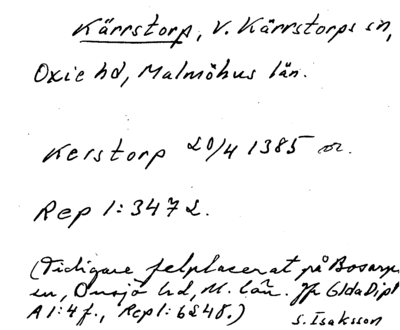 Kärrstorp, V. Kärrstorps sn,
Oxie hd, Malmöhus län.
Kerstorp 20/4 1385 or.
Rep 1:3472.
(Tidigare felplacerat på Bosarp
sn, Onsjö hd, M. län. Jfr GldaDipl
A 1:4 f., Rep 1:6248.)
S. Isaksson